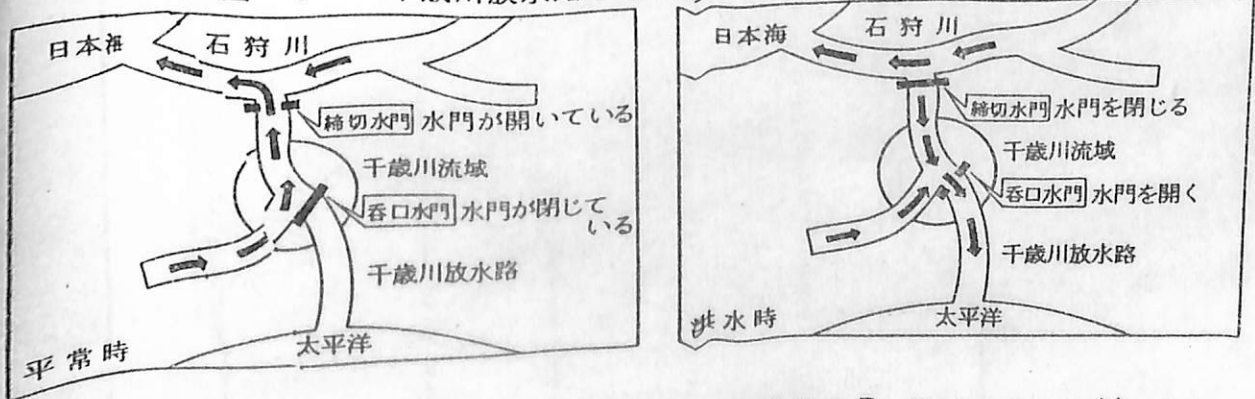 日本海
石狩川
締切水門 水門が開いている
千歳川流域
呑口水門 水門が閉じて
いる
千歳川放水路
太平洋
平常時
日本海
石狩川
締切水門 水門を閉じる
千歳川流域
呑口水門 水門を開く
千歳川放水路
太平洋
洪水時